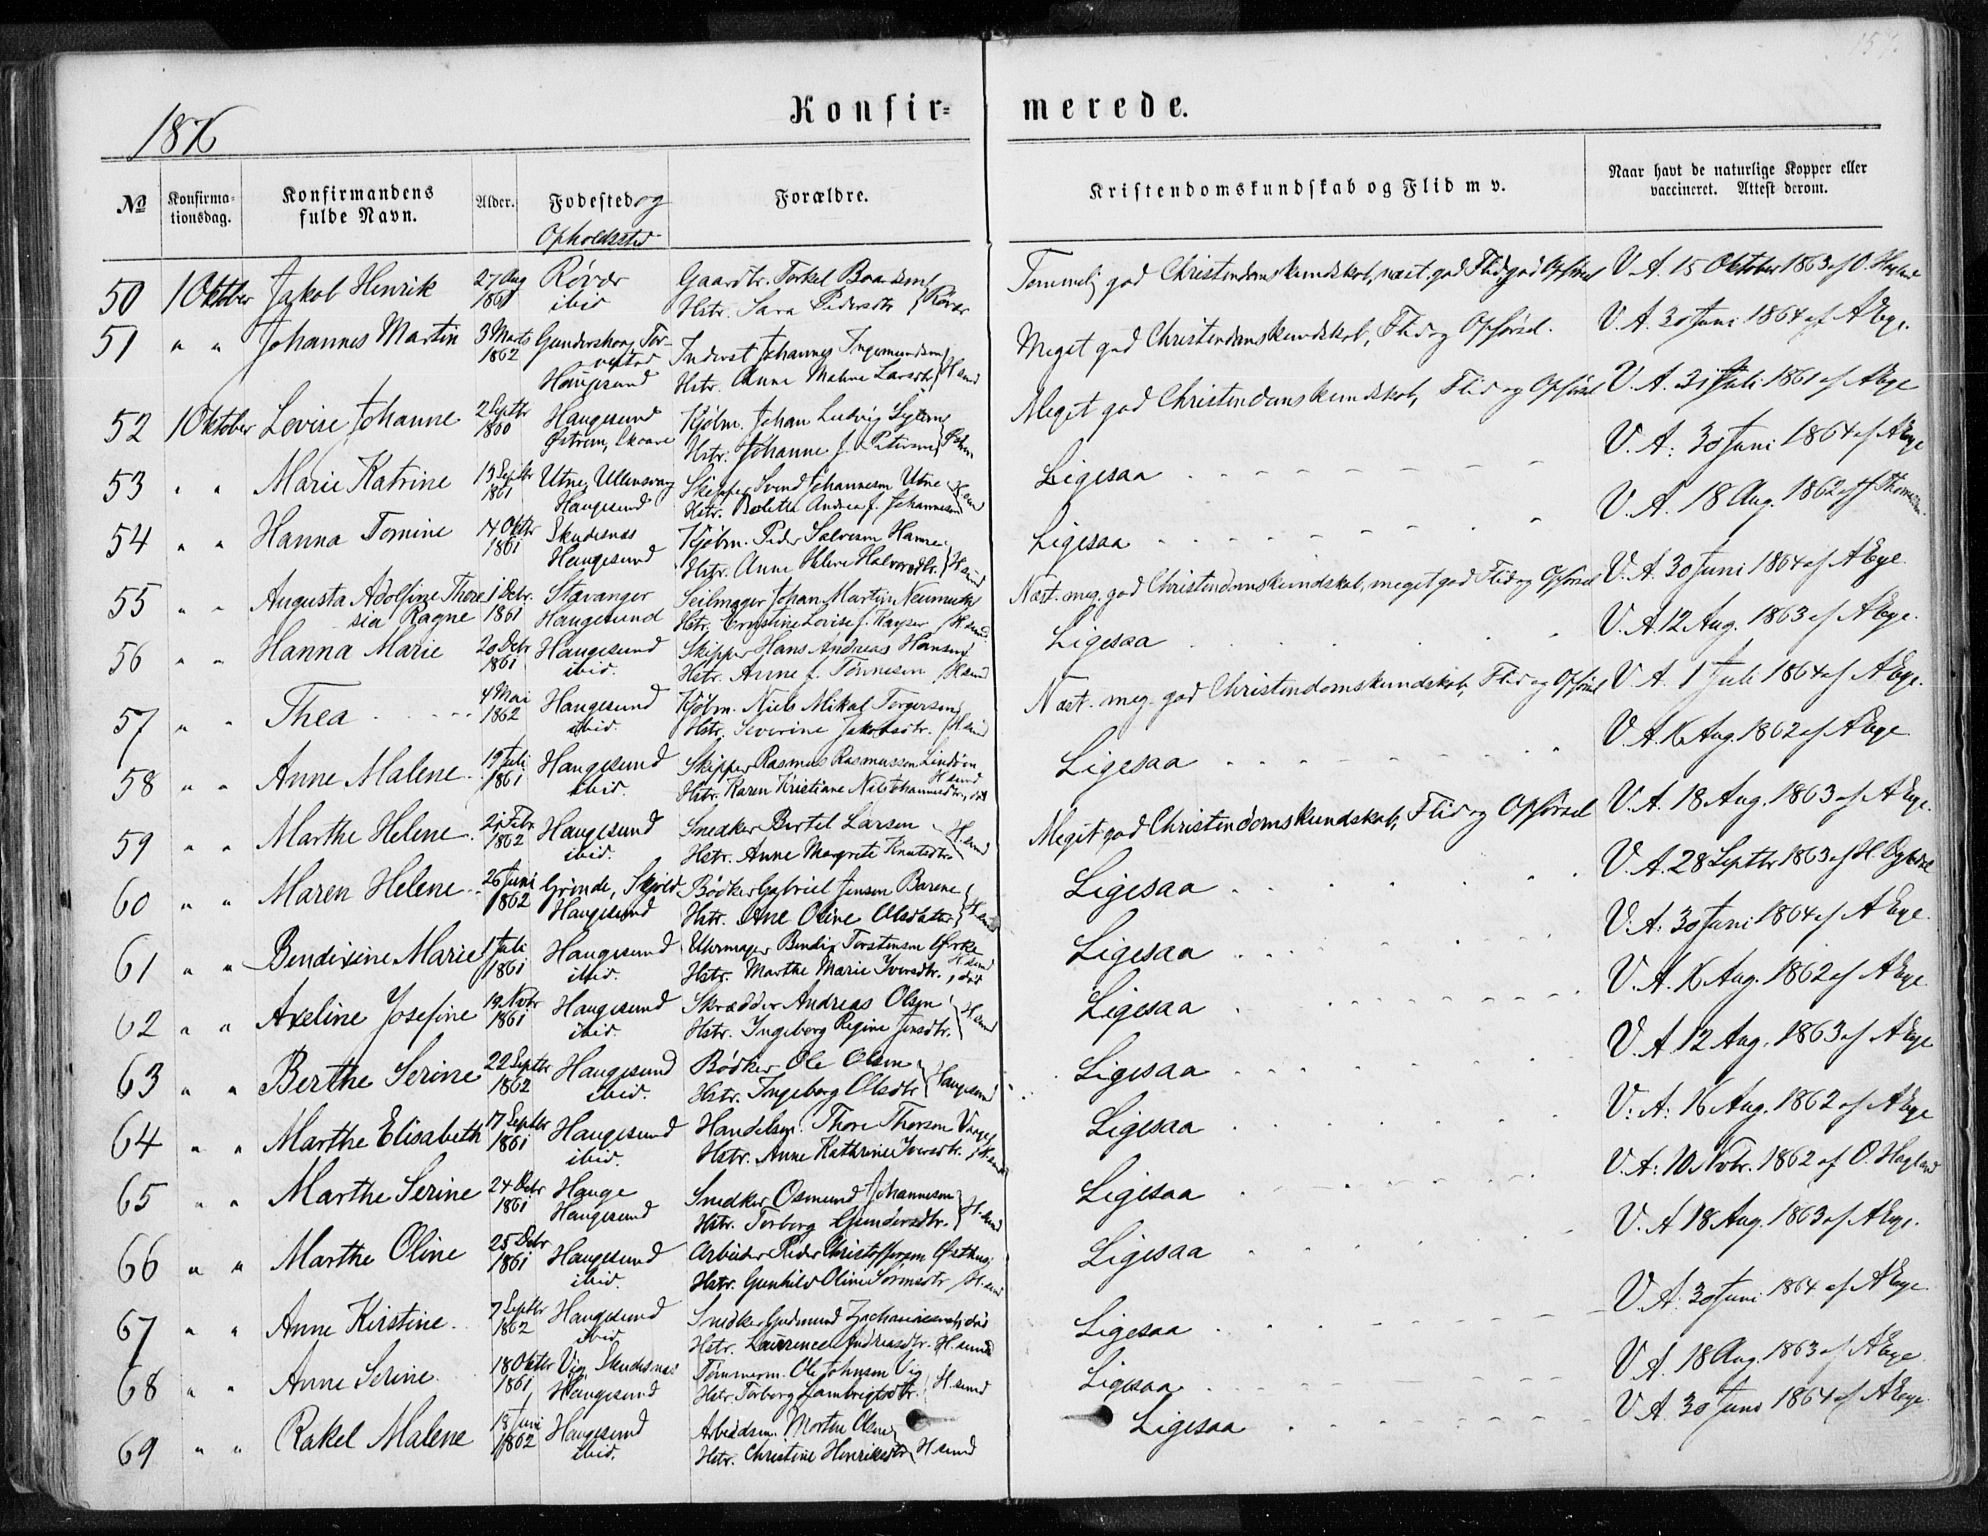 157.
1876
Konfir= merede.
№ Konfirma-tionsdag. Konfirmandens fulde Navn. Alder. Fødested og Opholdssted Forældre. Kristendomskundskab og Flid m v. Naar havt de naturlige Kopper eller vaccineret. Attest derom.
50 1 Oktober Jakob Henrik 27 Aug Røvær Gaardbr. Torkel Baardsen Temmelig god Christendomskundskab, næst. god Flid god Opførsel V. A. 15 Oktober 1863 af O.
1861 ibid Hstr. Sara Pedersdtr Røvær
51 " " Johannes Martin 3 Marts Gunderskaag, Tor- Inderst Johannes Ingemundsen Meget god Christendomskundskab, Flid og Opførsel. V. A. 30 Juni 1864 af AEge.
1862 vestad
Haugesund Hstr. Anne Malene Larsdtr H.sund
52 1 Oktober Lovise Johanne 2 Septbr Haugesund Kjøbm. Johan Ludvig Meget god Christendomskundskab, Flid og Opførsel V. A. 31 Juli 1861 af AEge
1860 Østrem, Skaare Hstr. Johanne f. Petersen
53 " " Marie Katrine 13 Septbr Utne, Ullensvang Skipper Svend Johannesen Utne Ligesaa V. A. 30 Juni 1864 af AEge
1861 Haugesund Hstr. Bolette Andrea f. Johannesen H.sund
54 " " Hanna Tomine 14 Oktbr Skudesnæs Kjøbm. Peder Salvesen Hanne. Ligesaa V. A. 18 Aug. 1862 af
1861 Haugesund Hstr. Anne Halvorsdtr. H.sund
55 " " Augusta Adolfine There- 1 Debr. Stavanger Seilmager Johan Martin Neumann Næst. meg. god Christendomskundskab, meget god Flid og Opførsel V. A. 30 Juni 1864 af AEge.
sia Ragne 1861 Haugesund Hstr. Ernstine Lovise f. Kayser H.sund.
56 " " Hanna Marie 20 Debr Haugesund Skipper Hans Andreas Hansen Ligesaa V. A. 12 Aug. 1863 af AEge.
1861 ibid. Hstr. Anne f. Tønnesen H.sund
57 " " Thea 4 Mai Haugesund Kjøbm. Niels Mikal Torgersen Næst. meg. god Christendomskundskab, Flid og Opførsel V. A. 1 Juli 1864 af AEge.
1862 ibid. Hstr. Severine Jakobsdtr. H.sund
58 " " Anne Malene 19 Juli Haugesund Skipper Rasmus Rasmussen Lindøen Ligesaa V. A. 16 Aug. 1862 af AEge
1861 ibid. Hstr. Karen Kristiane Nils H.sund
59 " " Marthe Helene 21 Febr Haugesund Snedker Bertel Larsen Meget god Christendomskundskab, Flid og Opførsel V. A. 18 Aug. 1863 af AEge.
1862 ibid. Hstr. Anne Margrete Knutsdtr H.sund
60 " " Maren Helene 26 Juni Grinde, Skjold Bødker Gabriel Jensen Barene Ligesaa V. A. 28 Septbr 1863 af H.
1862 Haugesund Hstr. Ane Oline Olsdatter H.sund
61 " " Bendixine Marie 1 Juli Haugesund Uhrmager Bendix Torstensen Ligesaa V. A. 30 Juni 1864 af AEge.
1861 ibid. Hstr. Marthe Marie Iversdtr., død H.sund
62 " " Axeline Josefine 19 Nvbr Haugesund Skrædder Andreas Olsen Ligesaa V. A. 16 Aug. 1862 af AEge
1861 ibid. Hstr. Ingeborg Regine Jensdtr. H.sund
63 " " Berthe Serine 22 Septbr Haugesund Bødker Ole Olsen Ligesaa V. A. 12 Aug. 1863 af AEge
1862 ibid. Hstr. Ingeborg Olsdtr Haugesund
64 " " Marthe Elisabeth 17 Septbr Haugesund Handelsm. Thore Thorsen Ligesaa V. A. 16 Aug. 1862 af AEge
1861 ibid. Hstr. Anne Kathrine Iversdtr. H.sund
65 " " Marthe Serine 24 Debr Hauge Snedker Osmund Johannesen Ligesaa V. A. 10 Nvbr. 1862 af O. Hagland
1861 Haugesund Hstr. Torborg Gundersdtr. H.sund
66 " " Marthe Oline 25 Debr Haugesund Arbeider Peder Christoffersen Østhus Ligesaa V. A 18 Aug. 1863 af AEge.
1861 ibid. Hstr. Gunhild Oline H.sund
67 " " Anne Kirstine 7 Septbr Haugesund Snedker Gudmund Zachariassen, død Ligesaa V. A. 30 Juni 1864 af AEge.
1862 ibid Hstr. Laurence Andreasdtr. H.sund
68 " " Anne Serine 18 Oktbr Vig, Skudesnæs Tømmerm. Ole Johnsen Vig Ligesaa V. A. 18 Aug. 1863 af AEge
1861 Haugesund Hstr. Torborg Lambrigtsdtr. H.sund
69 " " Rakel Malene 13 Juni Haugesund Arbeidsm. Morten Olsen Ligesaa V. A. 30 Juni 1864 af AEge.
1862 ibid. Hstr. Christine Henriksdtr H.sund